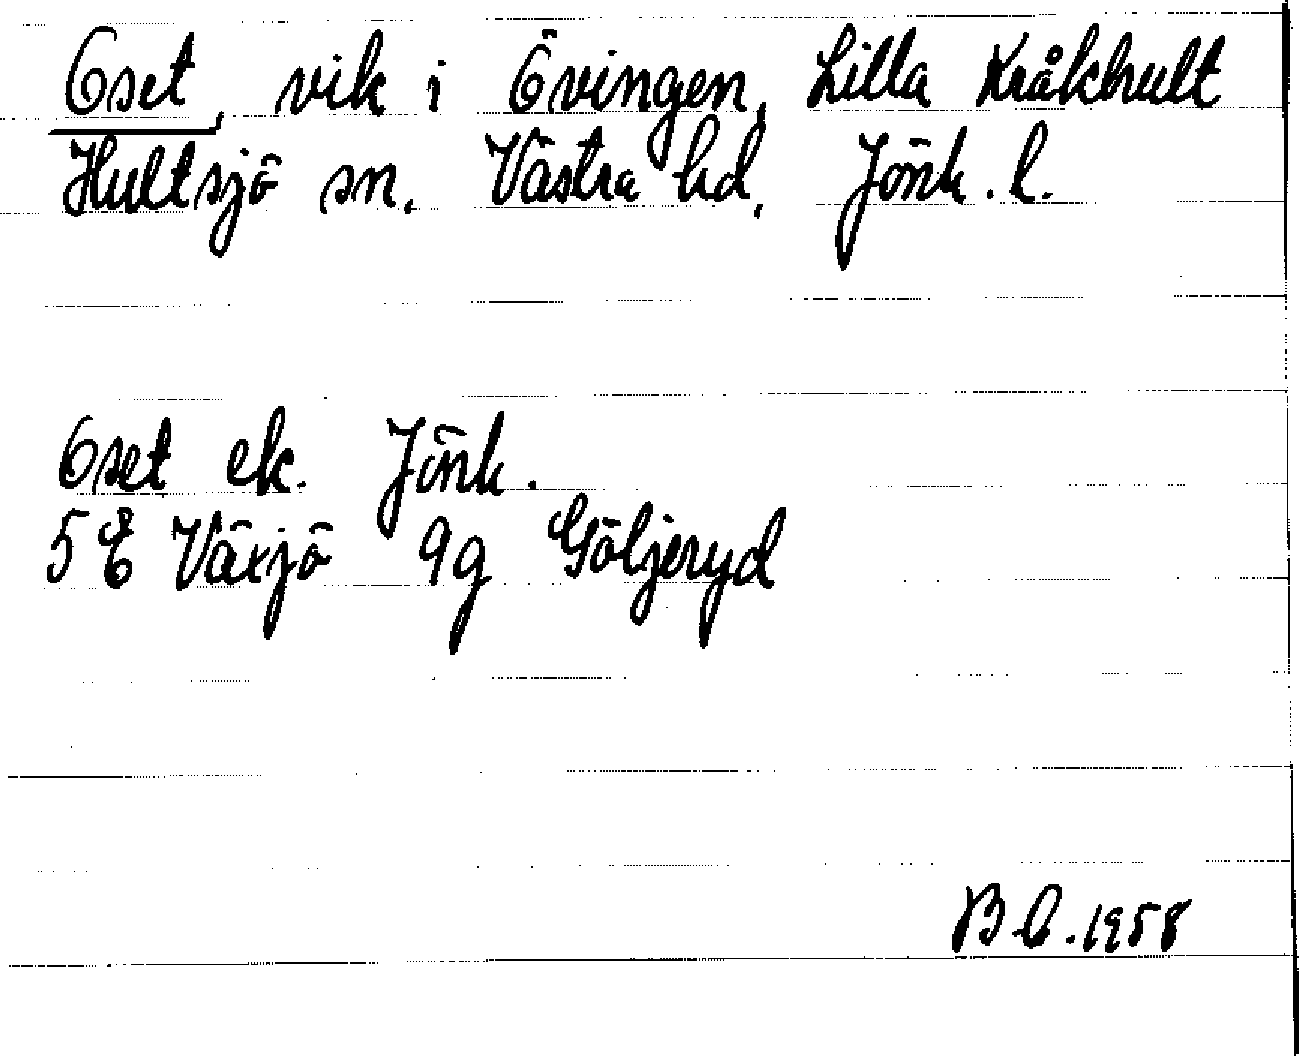 Oset, vik i Övingen, Lilla Kråkhult
Hultsjö sn. Västra hd, Jönk. l.
Oset ek. Jönk.
5 E Växjö 9g Göljeryd
B O. 1958